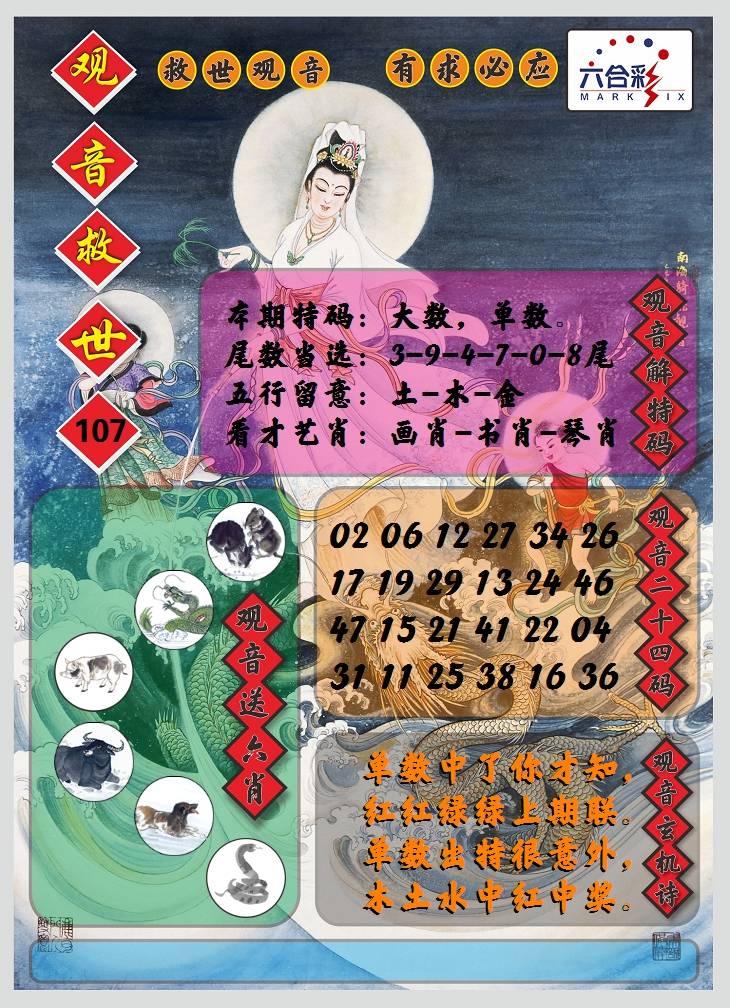 救世观音 有求必应
六合彩
MARK SIX
观音救世
107
本期特码：大数，单数。
尾数当选：3-9-4-7-0-8尾
五行留意：土-木-金
看才艺肖：画肖-书肖-琴肖
观音解特码
02 06 12 27 34 26
17 19 29 13 24 46
47 15 21 41 22 04
31 11 25 38 16 36
观音二十四码
观音送六肖
单数中了你才知，
红红绿绿上期联。
单数出特很意外，
木土水中红中奖。
观音玄机诗